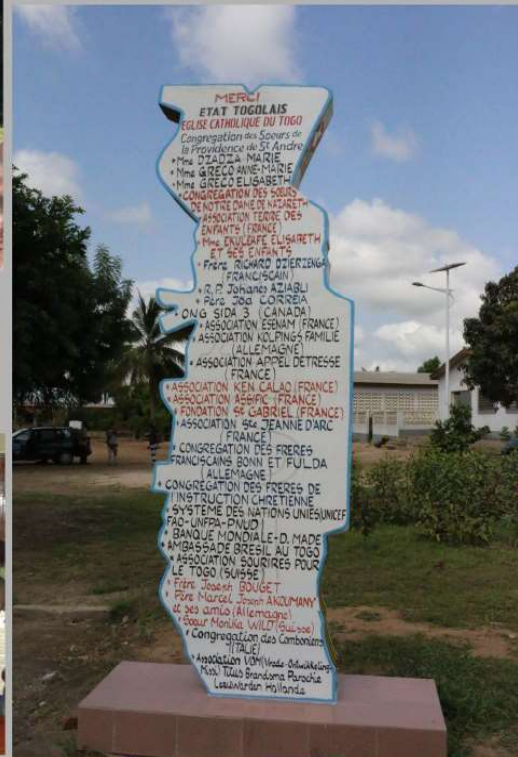 MERCI
ETAT TOGOLAIS
EGLISE CATHOLIQUE DU TOGO
Congregation des Soeurs de
la Providence de St Andre
• Mme DZADZA MARIE
• Mme GRECO ANNE-MARIE
• Mme GRECO ELISABETH
• CONGREGATION DES SŒURS
DE NOTRE DAME DE NAZARETH
• ASSOCIATION TERRE DES
ENFANTS (FRANCE)
• Mme EKULEAFE ELISABETH
ET SES ENFANTS
• Frère RICHARD DZIERZENGA
(FRANCISCAIN)
• R.P. Johanes AZIABLI
• Père Joa CORREIA
• ONG SIDA 3 (CANADA)
• ASSOCIATION ESENAM (FRANCE)
• ASSOCIATION KOLPINGS FAMILIE
(ALLEMAGNE)
• ASSOCIATION APPEL DETRESSE
(FRANCE)
• ASSOCIATION KEN CALAO (FRANCE)
• ASSOCIATION ASSIFIC (FRANCE)
• FONDATION St GABRIEL (FRANCE)
• ASSOCIATION Ste JEANNE D'ARC
FRANCE)
• CONGREGATION DES FRERES
FRANCISCAINS BONN ET FULDA
(ALLEMAGNE)
• CONGREGATION DES FRERES DE
l'INSTRUCTION CHRETIENNE
• SYSTEME DES NATIONS UNIES(UNICEF
FAO-UNFPA-PNUD)
• BANQUE MONDIALE-D. MADE
AMBASSADE BRESIL AU TOGO
• ASSOCIATION SOURIRES POUR
LE TOGO (SUISSE)
• Frère Joseph BOUGET
Père Marcel Joseph AKOUMANY
et ses amis (Allemagne)
• Soeur Monika WILD (Suisse)
• Congregation des Comboniens
(ITALIE)
• Association VOM (Vrede-Ontwikkeling-
Missi) Titus Brandsma Paroche
Leeuwarden Hollande